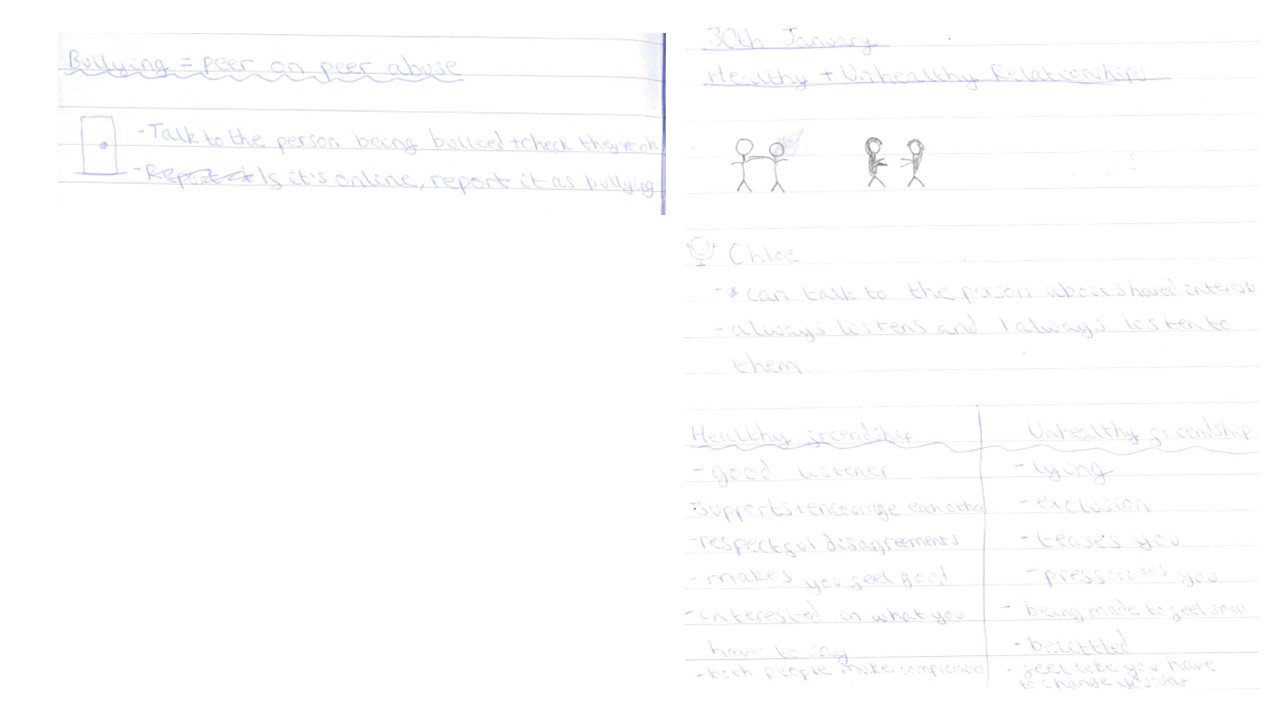 Bullying = peer on peer abuse
- Talk to the person being bullied + check they're ok
- If it's online, report it as bullying
30th January
Healthy + Unhealthy Relationships
Chloe
- can talk to the person about shared interest
- always listens and I always listen to
them
Healthy friendship
- good listener
supports + encourage each other
- respectful disagreements
- makes you feel good
- interested in what you
have to say
- both people make compromises
Unhealthy friendship
- lying
- exclusion
- teases you
- pressures you
- being made to feel small
- belittled
- feel like you have
to change yourself